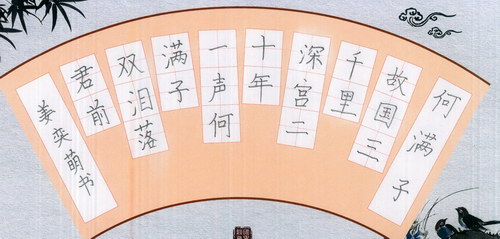 何满子
故国三
千里
深宫二
十年
一声何
满子
双泪落
君前
姜奕萌书